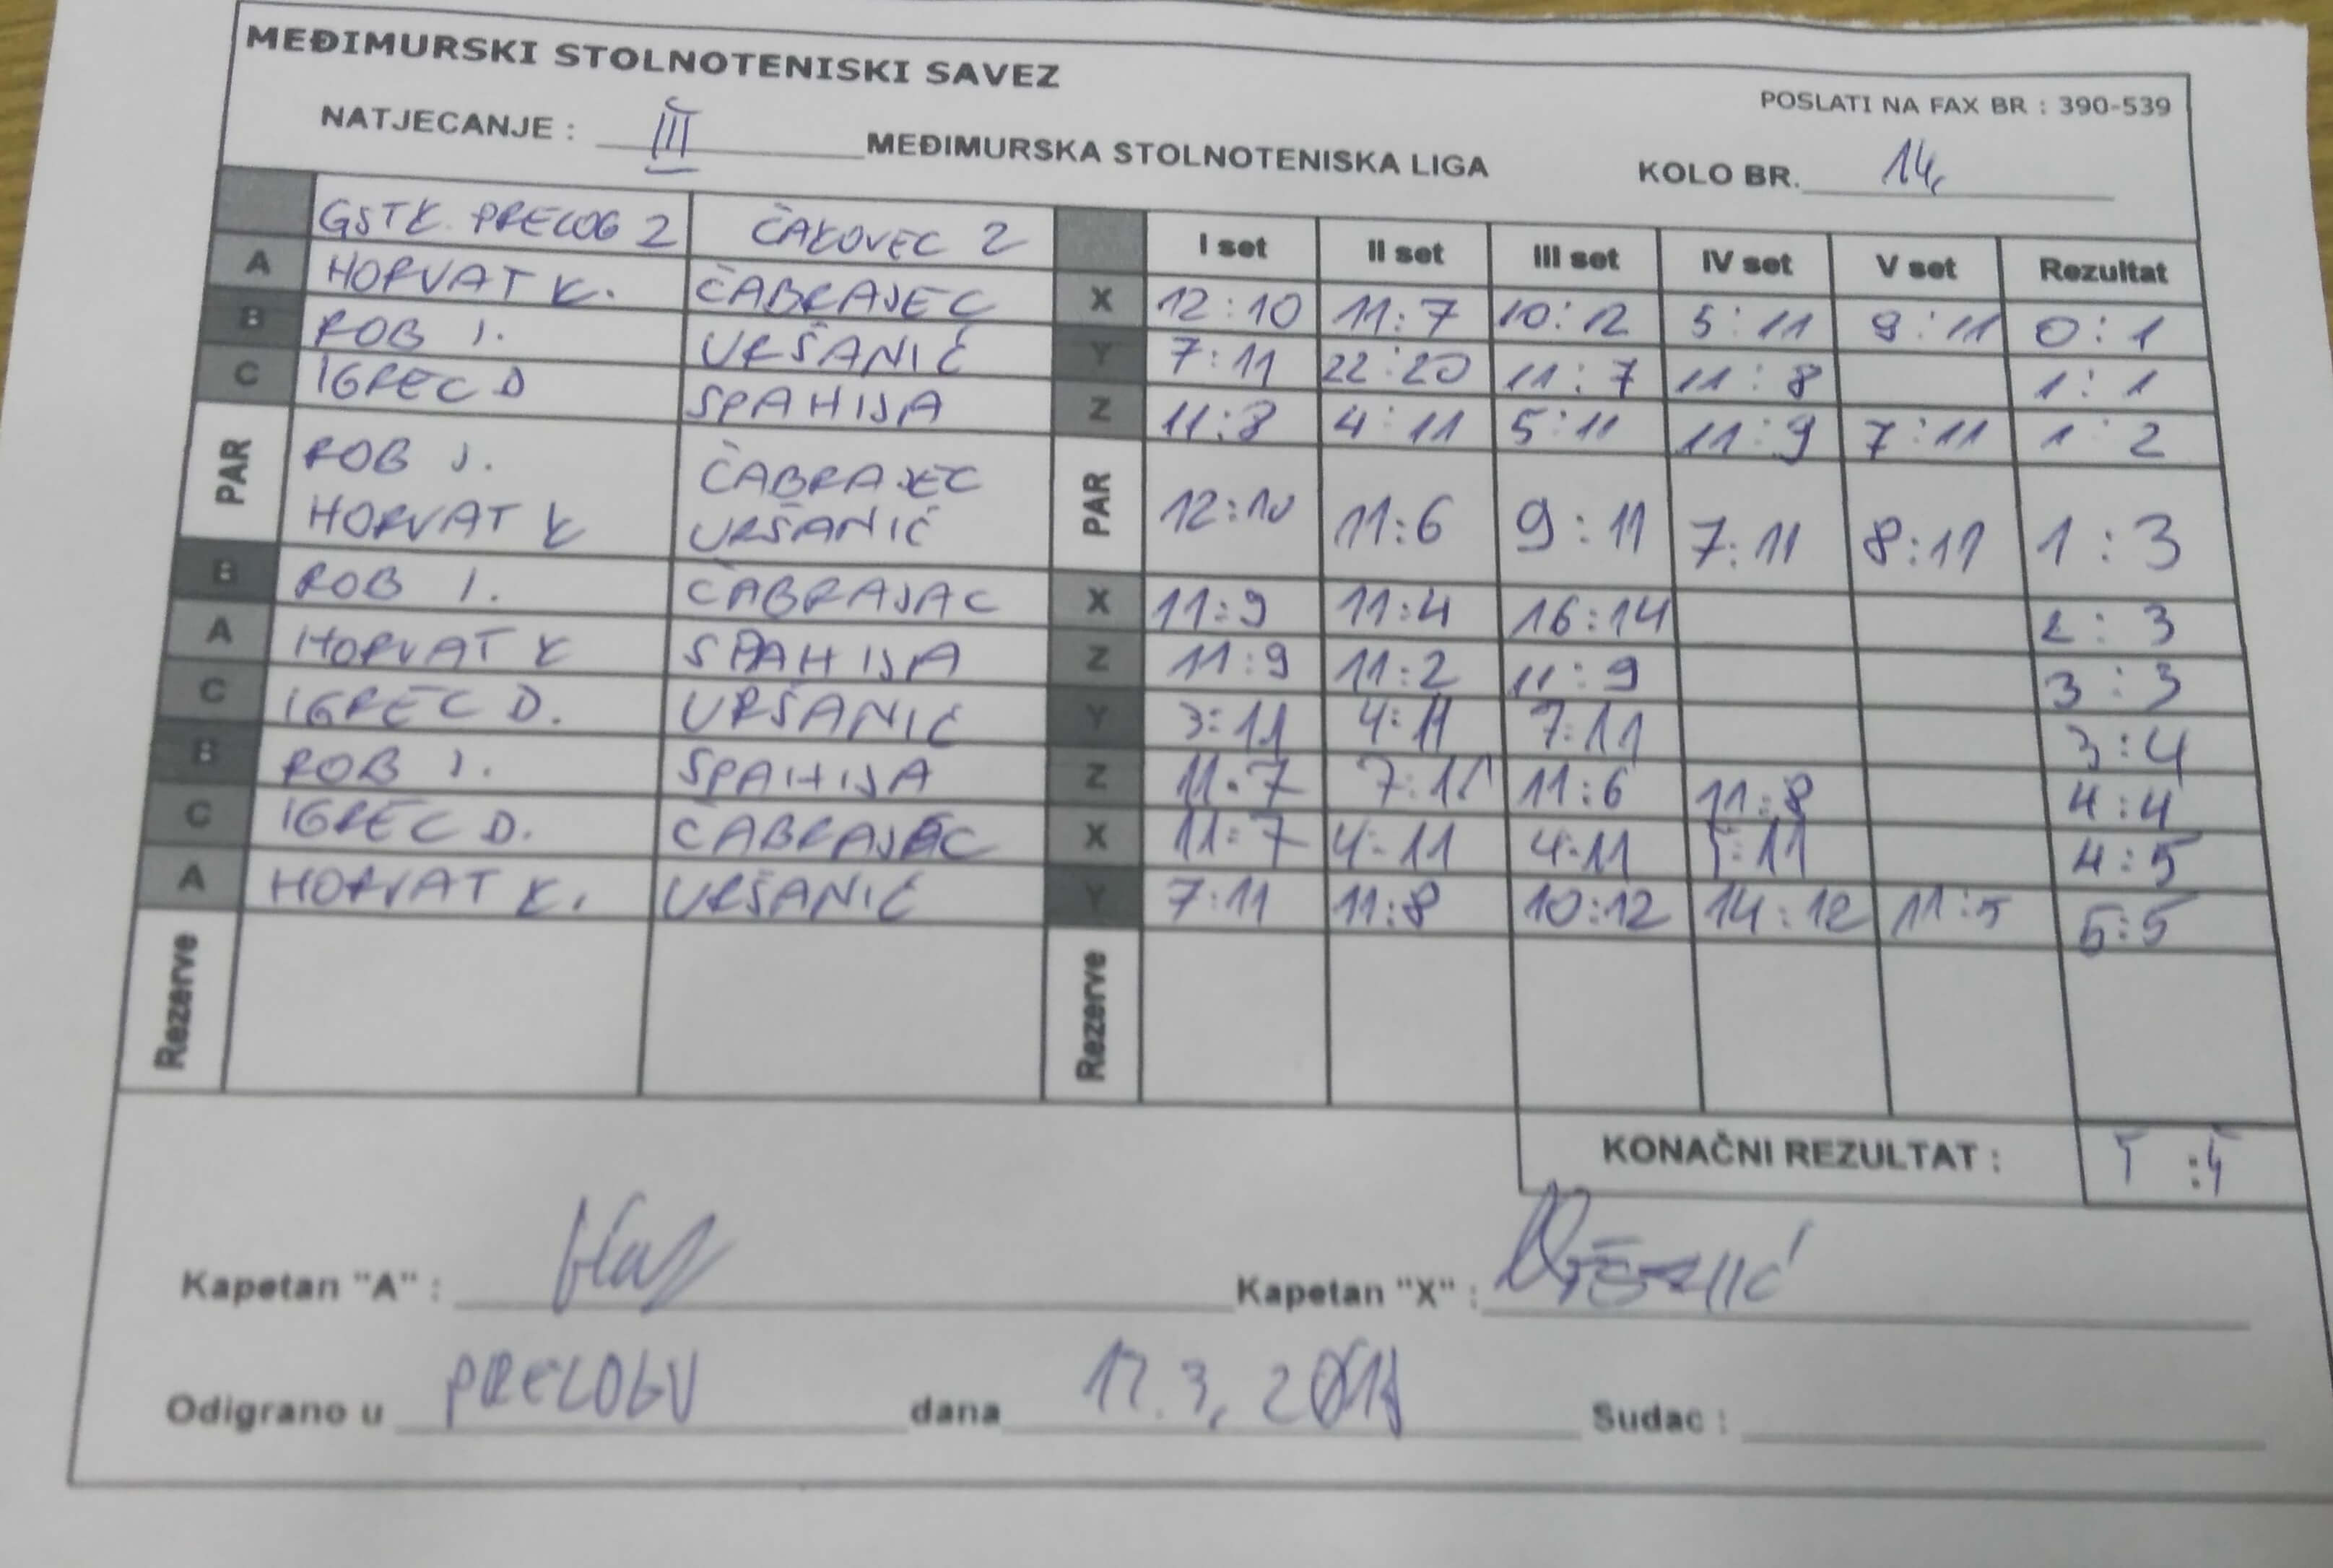 MEĐIMURSKI STOLNOTENISKI SAVEZ
POSLATI NA FAX BR : 390-539
NATJECANJE : III MEĐIMURSKA STOLNOTENISKA LIGA KOLO BR. 14.
GSTK. PRELOG 2 ČAKOVEC 2 I set II set III set IV set V set Rezultat
A HORVAT K. ČABRAJEC X 12:10 11:7 10:12 5:11 9:11 0:1
B ROB I. URŠANIĆ Y 7:11 22:20 11:7 11:8 1:1
C IGREC D SPAHIJA Z 11:8 4:11 5:11 11:9 7:11 1:2
PAR ROB J. ČABRAJEC PAR 12:10 11:6 9:11 7:11 8:11 1:3
HORVAT K URŠANIĆ
B ROB I. ČABRAJAC X 11:9 11:4 16:14 2:3
A HORVAT K SPAHIJA Z 11:9 11:2 11:9 3:3
C IGREC D. URŠANIĆ Y 3:11 4:11 7:11 3:4
B ROB J. SPAHIJA Z 11:7 7:11 11:6 11:8 4:4
C IGREC D. ČABRAJAC X 11:7 4-11 4-11 5:11 4:5
A HORVAT K. URŠANIĆ Y 7:11 11:8 10:12 14:12 11:5 5:5
Rezerve Rezerve
KONAČNI REZULTAT : 5:5
Kapetan "A" : Kapetan "X" :
Odigrano u PRELOGU dana 17.3. Sudac :